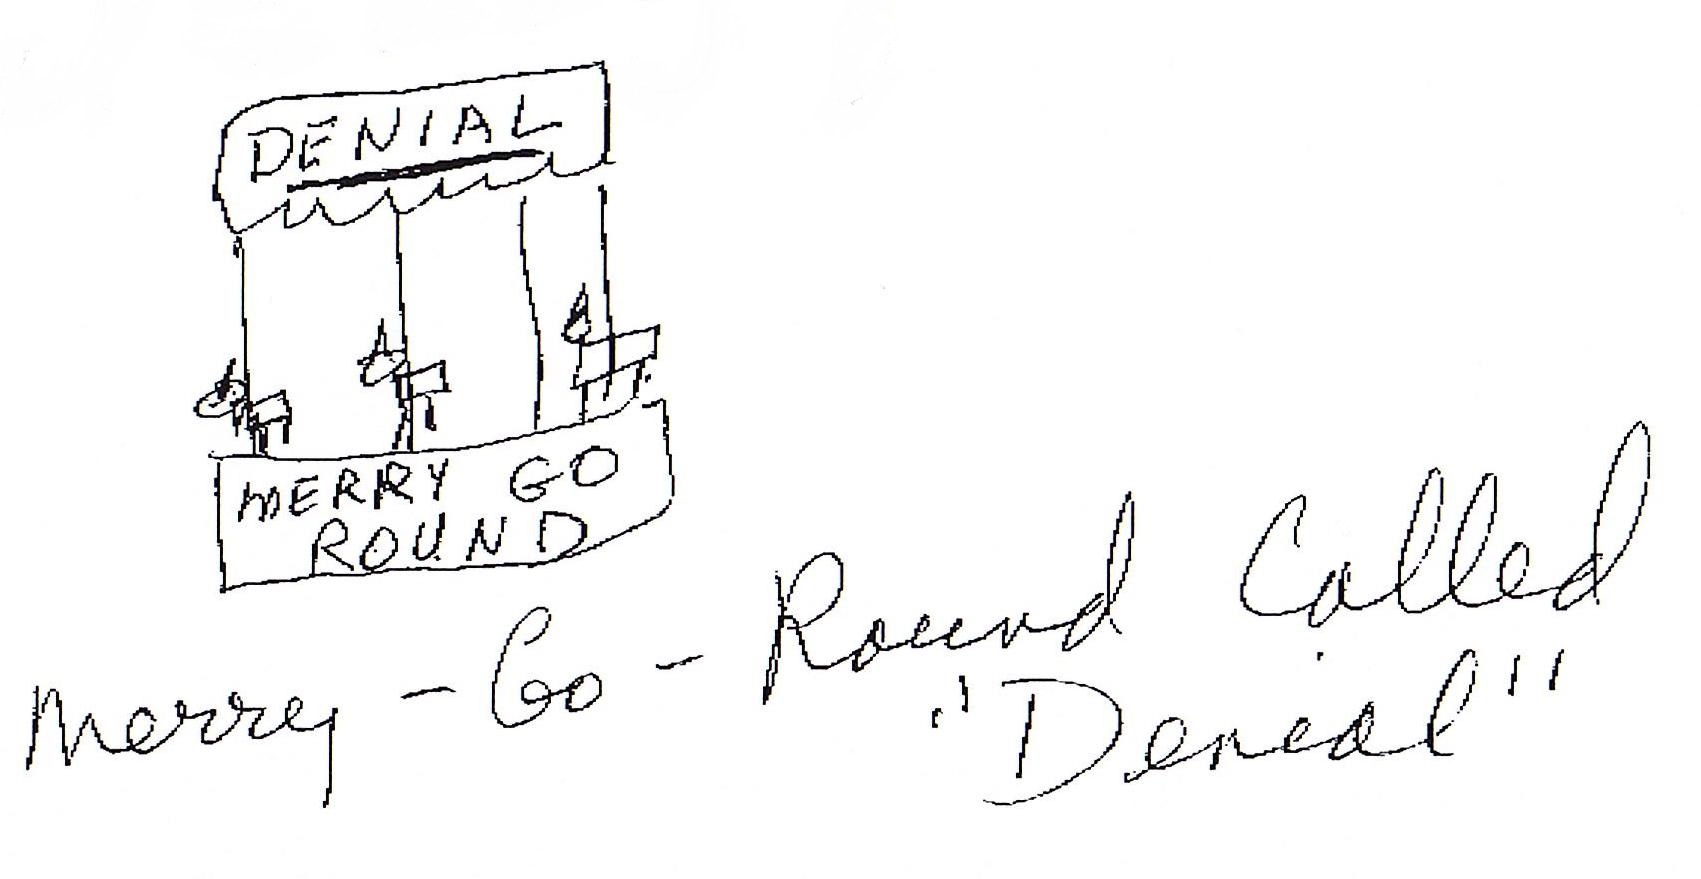 DENIAL
MERRY GO
ROUND
Merry - Go - Round Called
"Denial"